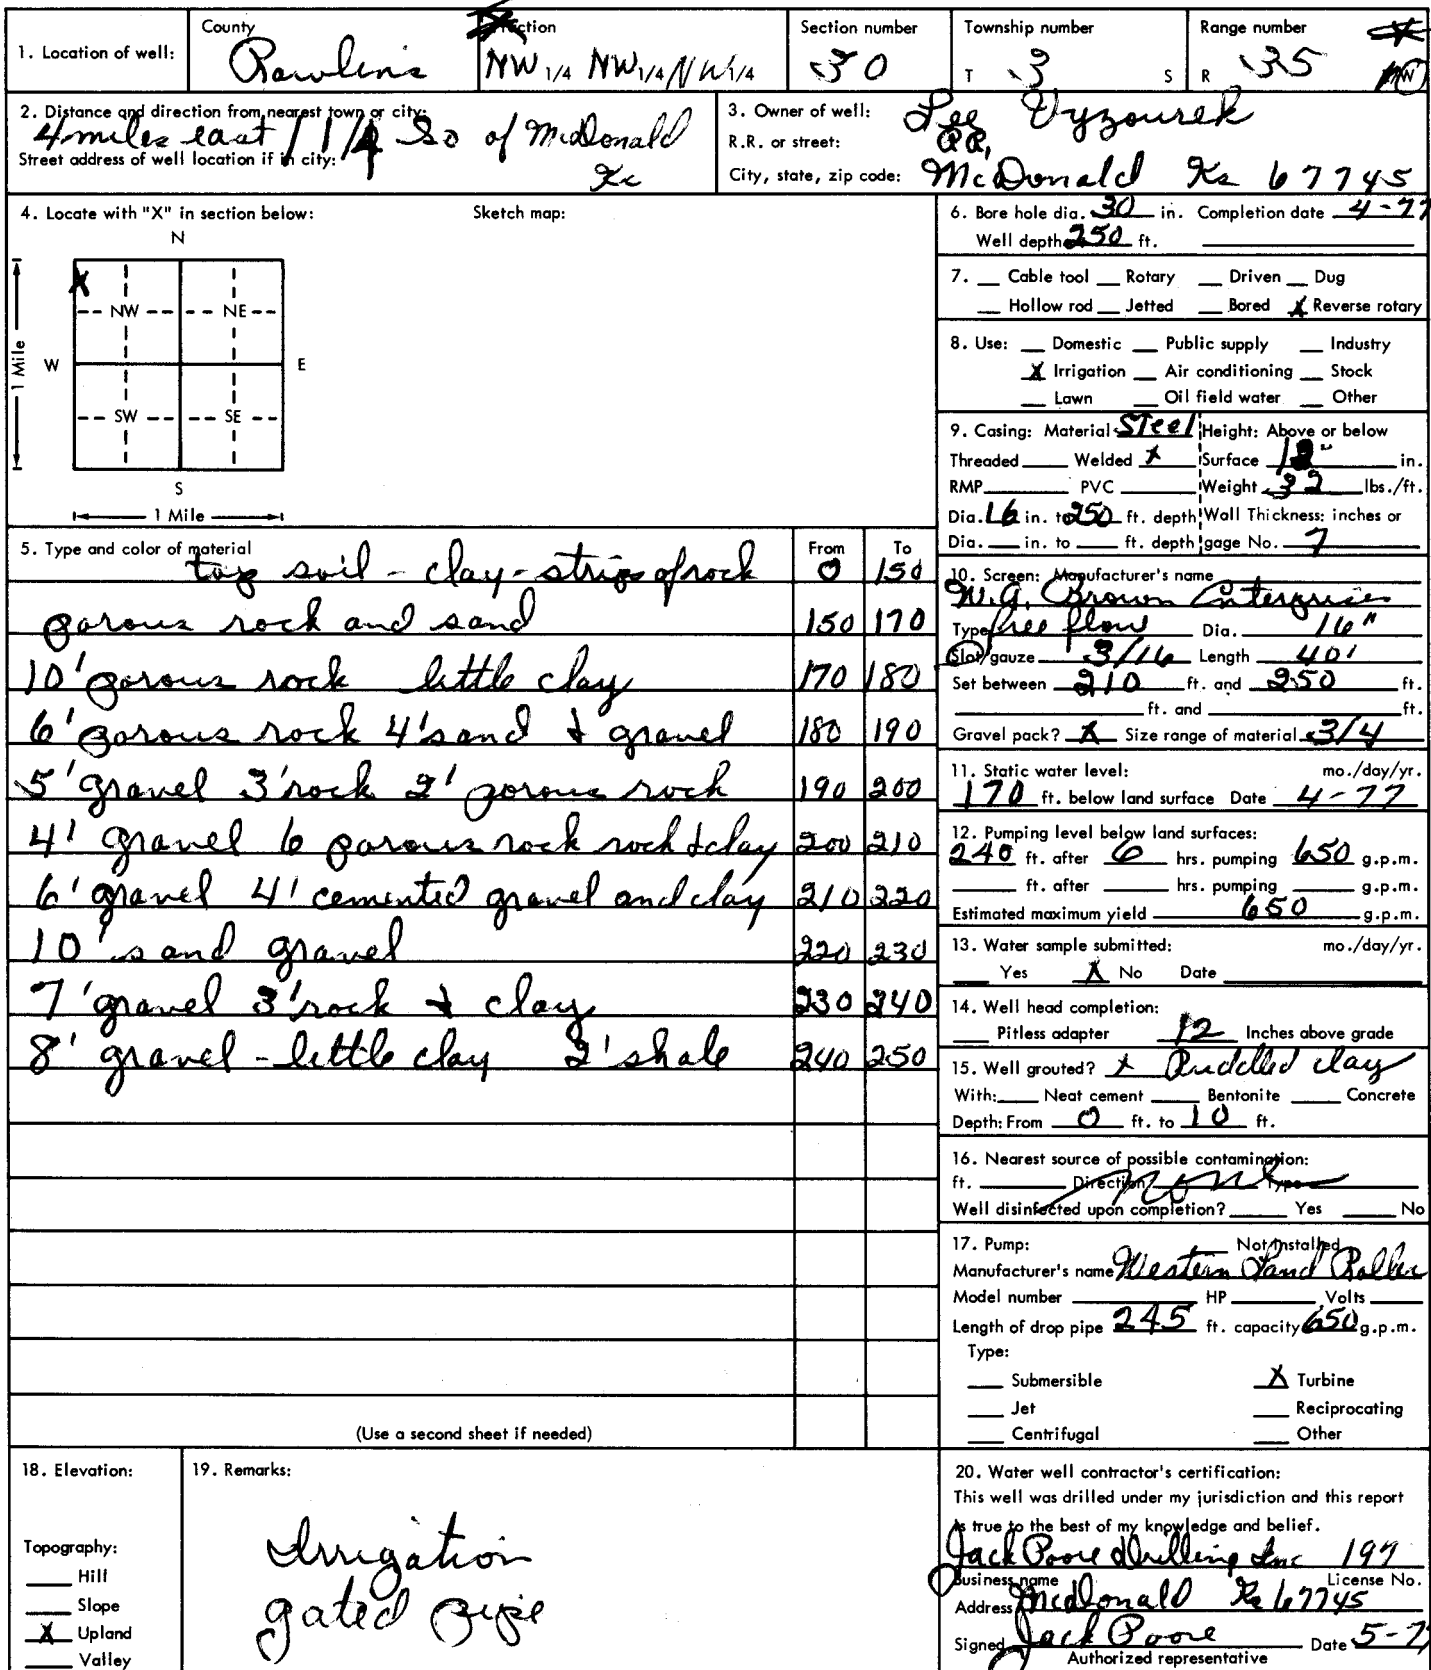 1. Location of well:
County
Rawlins
NW 1/4 NW 1/4 NW 1/4
Section number
30
Township number
T 3 S
Range number
R 35 W
2. Distance and direction from nearest town or city:
4 miles east 1 1/4 So of McDonald
Street address of well location if in city:
Ks
3. Owner of well: Lee Vyzourek
R.R. or street: RR,
City, state, zip code: McDonald Ks 67745
4. Locate with "X" in section below:
Sketch map:
N
X
NW NE
W E
1 Mile
SW SE
S
1 Mile
5. Type and color of material From To
top soil - clay - strips of rock 0 150
porous rock and sand 150 170
10' porous rock little clay 170 180
6' porous rock 4' sand & gravel 180 190
5' gravel 3' rock 2' porous rock 190 200
4' gravel 6 porous rock rock & clay 200 210
6' gravel 4' cemented gravel and clay 210 220
10' sand gravel 220 230
7' gravel 3' rock & clay 230 240
8' gravel - little clay 2' shale 240 250
(Use a second sheet if needed)
6. Bore hole dia. 30 in. Completion date 4-77
Well depth 250 ft.
7. __ Cable tool __ Rotary __ Driven __ Dug
__ Hollow rod __ Jetted __ Bored X Reverse rotary
8. Use: __ Domestic __ Public supply __ Industry
X Irrigation __ Air conditioning __ Stock
__ Lawn __ Oil field water __ Other
9. Casing: Material Steel Height: Above or below
Threaded __ Welded X Surface 12" in.
RMP __ PVC __ Weight 32 lbs./ft.
Dia. 16 in. to 250 ft. depth Wall Thickness: inches or
Dia. __ in. to __ ft. depth gage No. 7
10. Screen: Manufacturer's name
W.G. Brown Enterprises
Type free flow Dia. 16"
Slot/gauze 3/16 Length 40'
Set between 210 ft. and 250 ft.
__ ft. and __ ft.
Gravel pack? X Size range of material 3/4
11. Static water level: mo./day/yr.
170 ft. below land surface Date 4-77
12. Pumping level below land surfaces:
240 ft. after 6 hrs. pumping 650 g.p.m.
__ ft. after __ hrs. pumping __ g.p.m.
Estimated maximum yield 650 g.p.m.
13. Water sample submitted: mo./day/yr.
__ Yes X No Date __
14. Well head completion:
__ Pitless adapter 12 Inches above grade
15. Well grouted? X Puddled clay
With: __ Neat cement __ Bentonite __ Concrete
Depth: From 0 ft. to 10 ft.
16. Nearest source of possible contamination:
ft. __ Direction none Type
Well disinfected upon completion? __ Yes __ No
17. Pump: __ Not installed
Manufacturer's name Western Land Roller
Model number __ HP __ Volts __
Length of drop pipe 245 ft. capacity 650 g.p.m.
Type:
__ Submersible X Turbine
__ Jet __ Reciprocating
__ Centrifugal __ Other
18. Elevation:
Topography:
__ Hill
__ Slope
X Upland
__ Valley
19. Remarks:
Irrigation
gated pipe
20. Water well contractor's certification:
This well was drilled under my jurisdiction and this report
is true to the best of my knowledge and belief.
Jack Poore Drilling Inc 197
Business name License No.
Address McDonald Ks 67745
Signed Jack Poore Date 5-77
Authorized representative